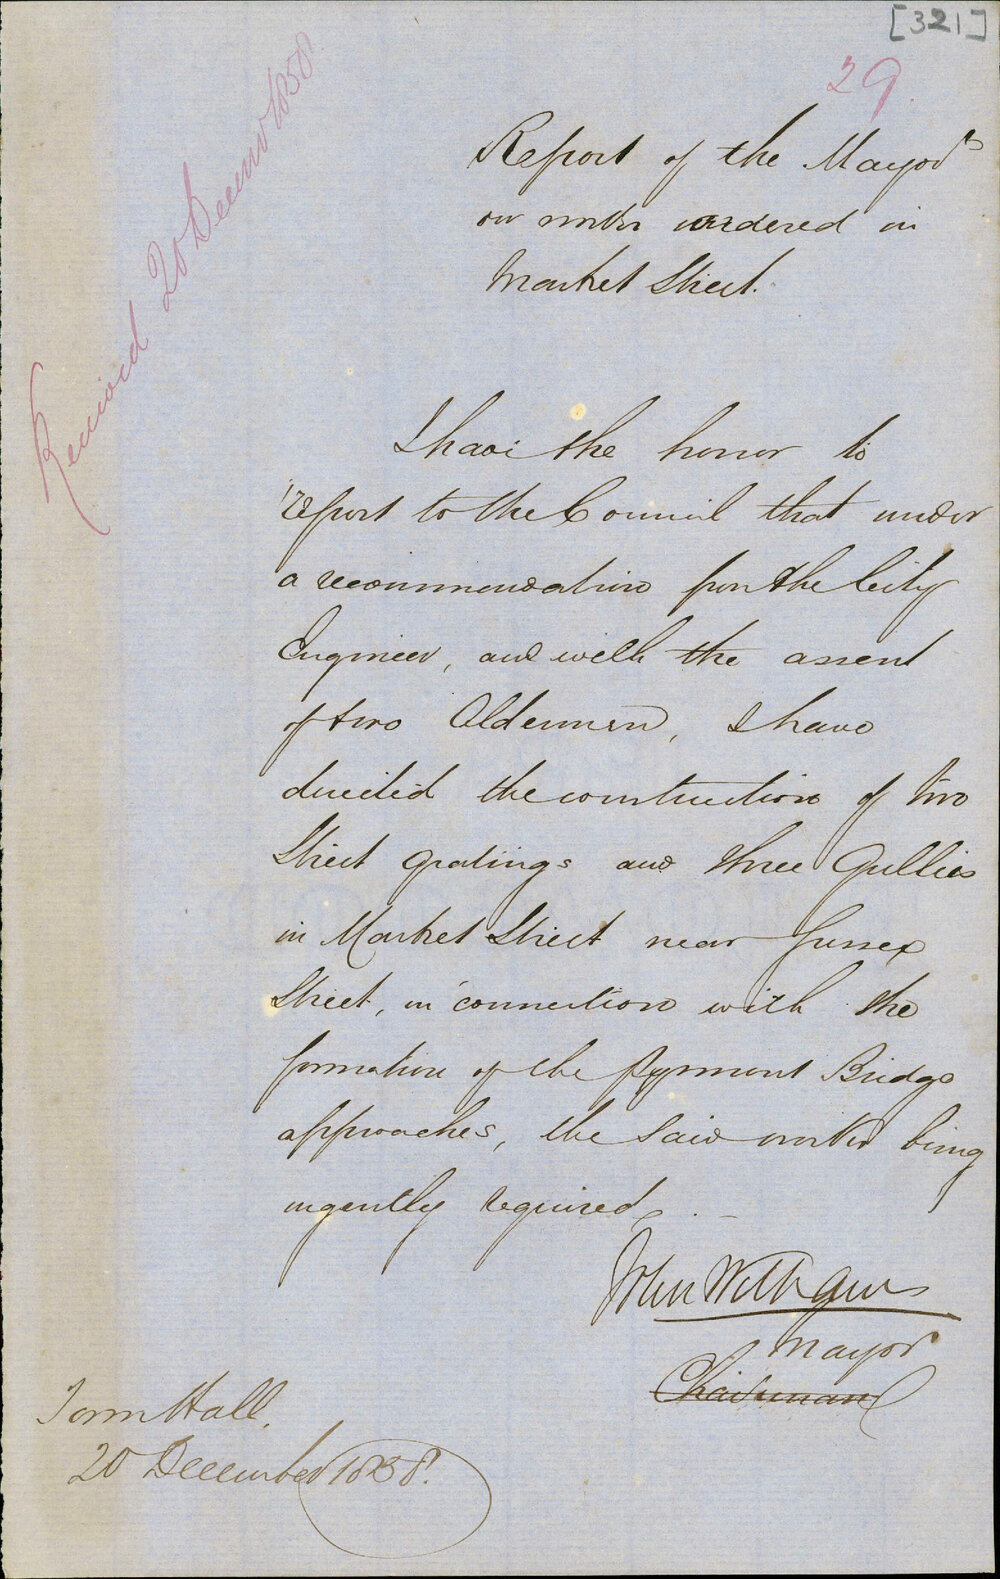 [321]
29.
Received 20 December 1858
Report of the Mayor
on works ordered in
Market Street.
I have the honor to
report to the Council that under
a recommendation from the City
Engineer, and with the assent
of two Aldermen, I have
directed the construction of two
Street gratings and three Gullies
in Market Street near Sussex
Street, in connection with the
formation of the Pyrmont Bridge
approaches, the said works being
urgently required.
John Williams
Mayor
Chairman
Town Hall.
20 December 1858.